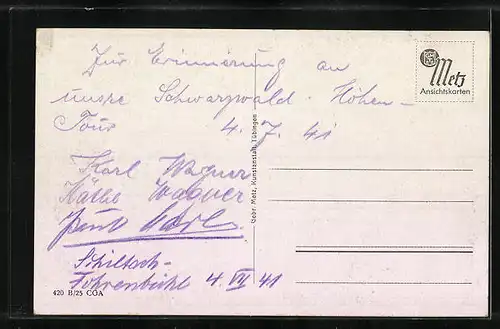 Zur Erinnerung an
unsre Schwarzwald-Höhen-
Tour 4. 7. 41
Karl Wagner
Käthe Wagner
Schiltach-
Fohrenbühl 4. VII 41
Metz
Ansichtskarten
Gebr. Metz, Kunstanstalt, Tübingen
420 B/25 COA